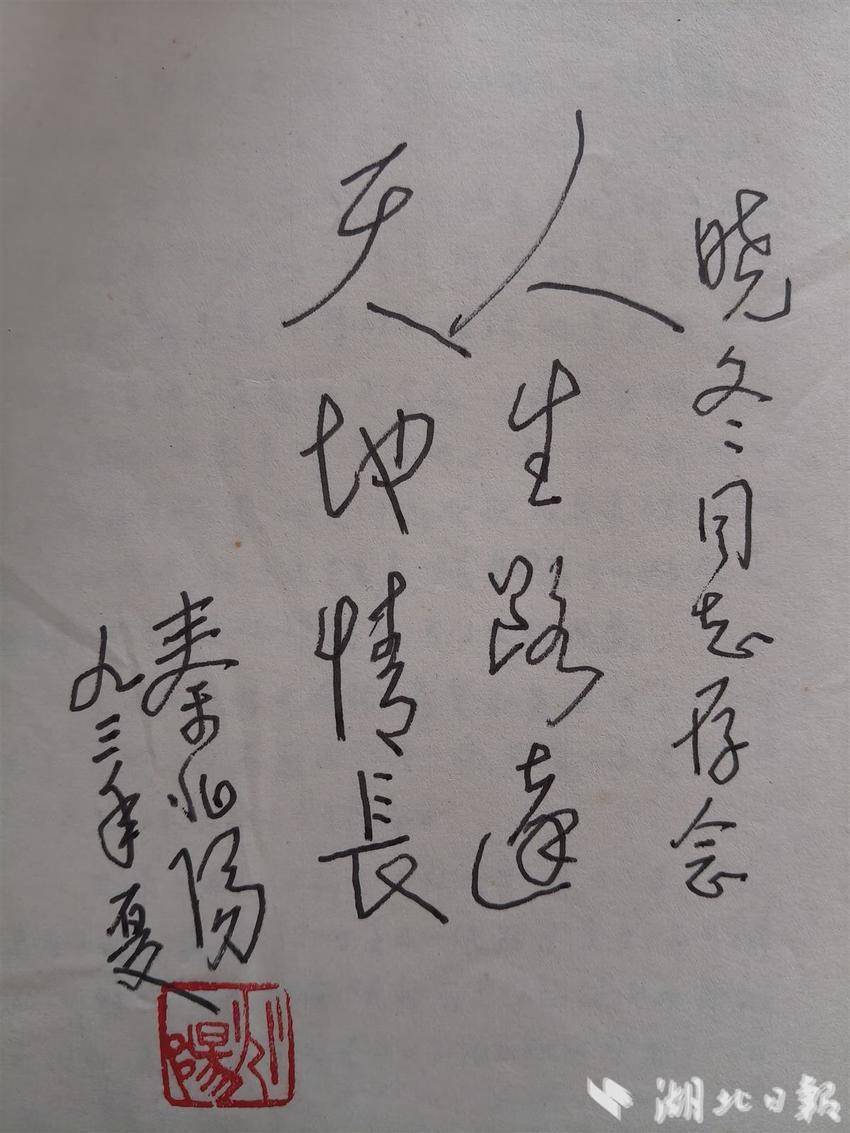 晓冬同志存念
人生路遠
天地情長
秦兆陽
九三年夏
兆陽
湖北日報